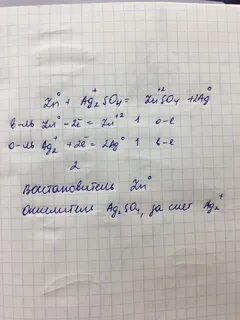 Zn⁰ + Ag₂⁺SO₄ = Zn⁺²SO₄ + 2Ag⁰
в-ль Zn⁰ - 2e̅ = Zn⁺² 1 о-е
о-ль Ag₂⁺ + 2e̅ = 2Ag⁰ 1 в-е
2
Восстановитель Zn⁰
Окислитель Ag₂SO₄, за счет Ag₂⁺